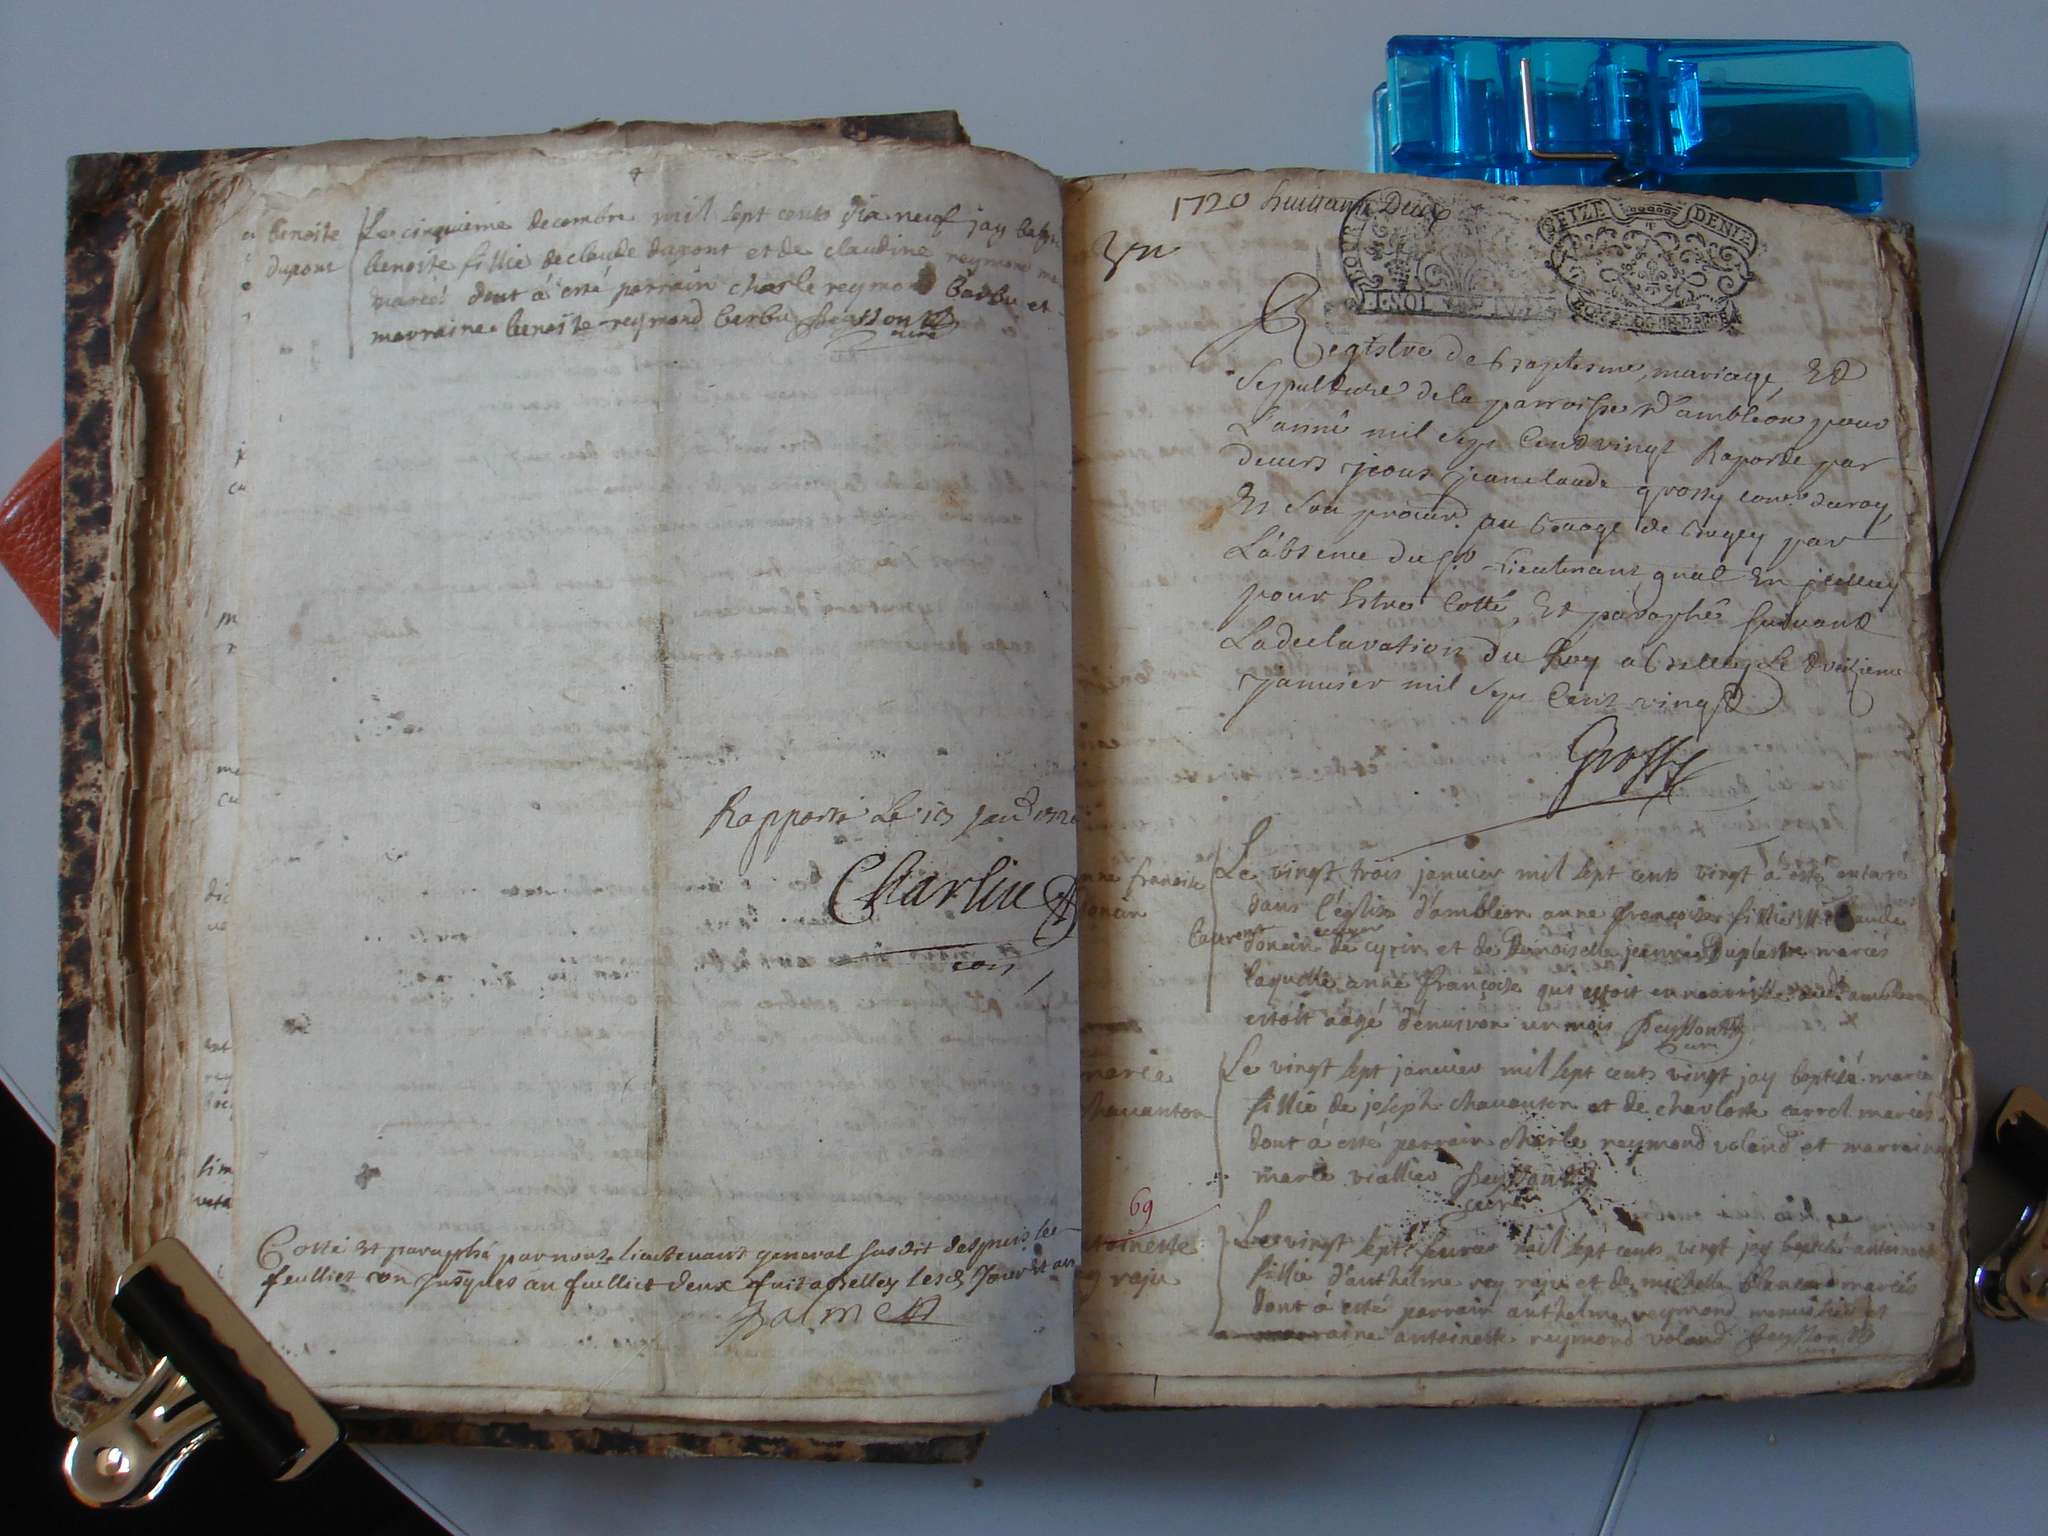 benoite
dupont
Le cinquieme decembre mil sept cents dix neuf jay bapt
benoite fillie de claude dupont et de claudine reymond
mariés dont á esté parrain charle reymond barbu et
marraine benoite reymond barbu peysson
curé
Rapporté le 13 janv 1720
Charlin
Cotté et parapphé par nous lieutenant general susdit despuis le
feulliet un jusques au fuilliet deux fait a Belley lesd jour et an
Balme
1720
un
SEIZE DENIE
Registre de baptesme, mariage, Et
Sepulture de la parroisse d'ambléon pour
L'anné mil sept Cent vingt Raporté par
devers nous jean claude grossy
Et Son procur. au baage de bugey par
L'absence du Sr. Lieutenant gnal
pour Estre Cotté, Et paraphé suivant
La declaration du Roy a belley le
janvier mil sept Cent vingt
Grossy
ne francoise
doncin
Le vingt trois janvier mil sept cents vingt á esté enterré
dans l'églize d'ambléon anne françoise fillie
laurent
doncin de cyrin et de Demoiselle jeanne Duplastre mariés
laquelle anne françoise qui estoit en nourrisse
estoit aagé d'environ un mois peysson
curé
marie
chavanton
Le vingt sept janvier mil sept cents vingt jay baptisé marie
fillie de joseph chavanton et de charlotte carrel mariés
dont á esté parrain charle reymond voland et marraine
marie viallier peysson
curé
69
toinette
y raju
Le vingt sept feuvrier mil sept cents vingt jay baptisé antoinette
fillie d'anthelme rey raju et de michelle blancard mariés
dont á esté parrain anthelme reymond menuisier et
marraine antoinette reymond voland peysson
curé